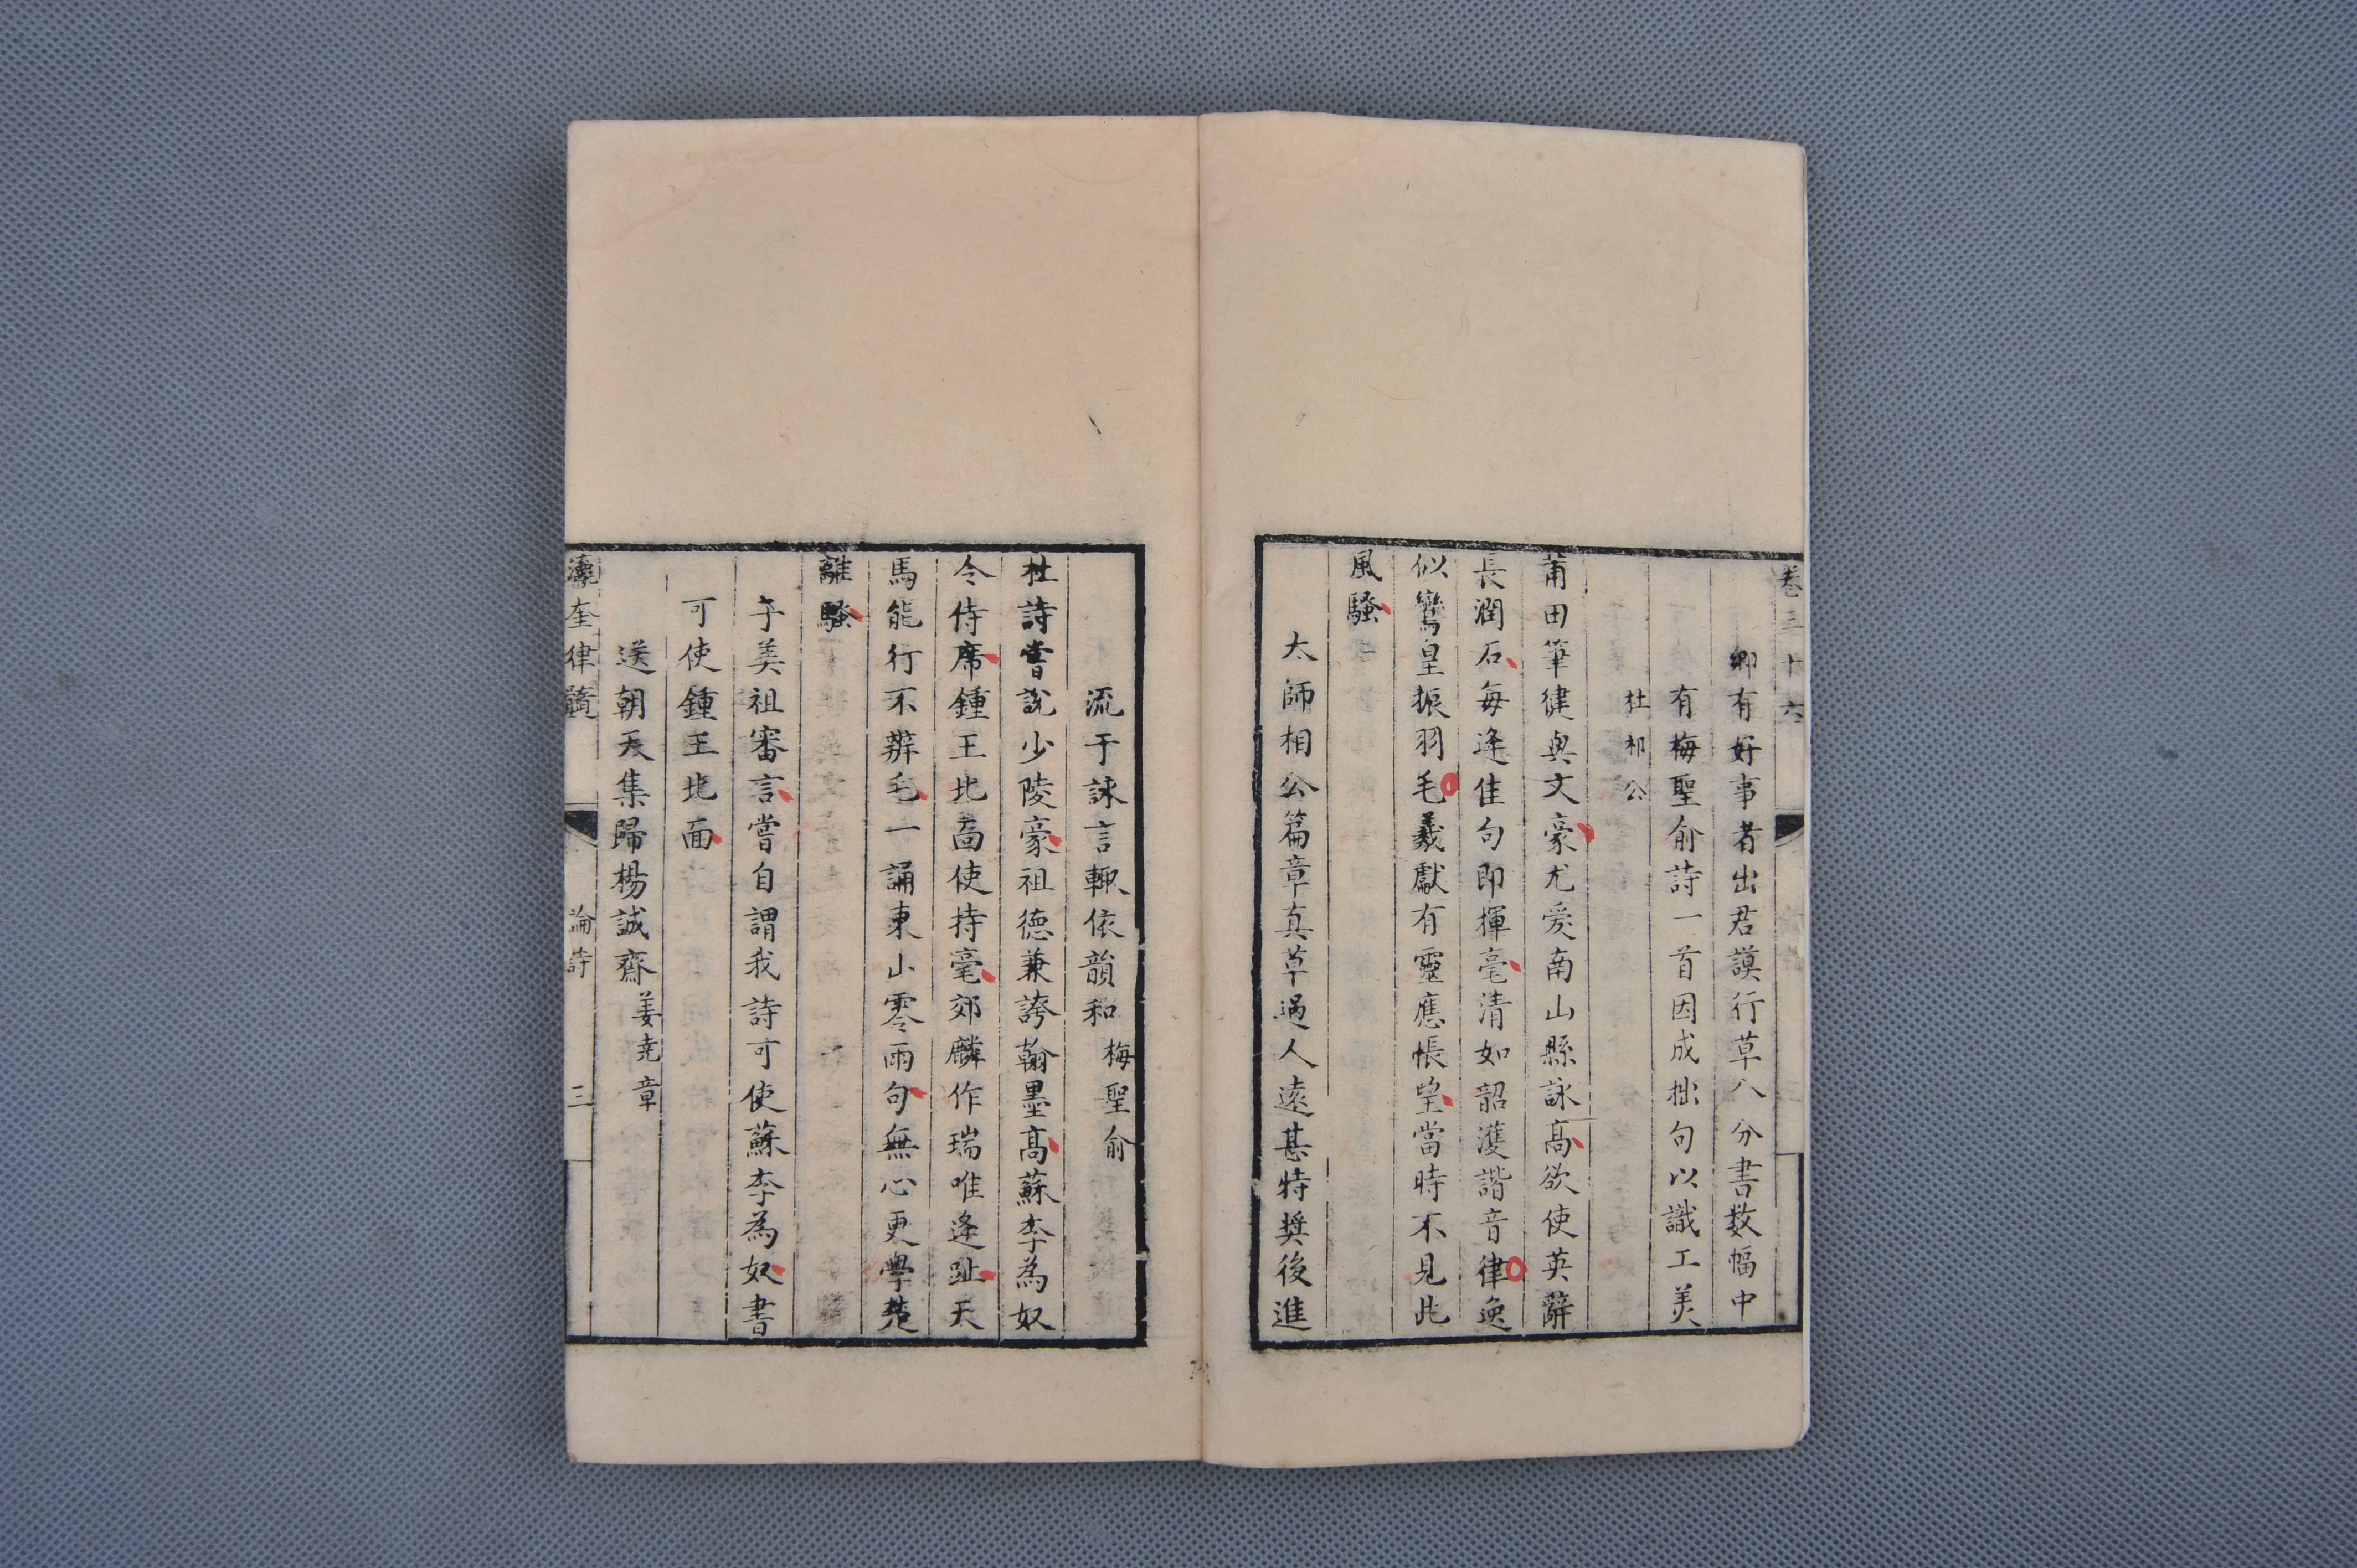 卷三十六
鄉有好事者出君謨行草八分書数幅中
有梅聖俞詩一首因成拙句以識工美
杜祁公
莆田筆健與文豪尤爱南山縣詠髙欲使英辭
長潤石每逢佳句即揮毫清如韶濩諧音律逸
似鸞皇振羽毛羲獻有靈應悵望當時不見此
風騷
太師相公篇章真草過人遠甚特奬後進
流于詠言輒依韻和梅聖俞
杜詩嘗說少陵豪祖德兼誇翰墨髙蘇李為奴
令侍席鍾王北面使持毫郊麟作瑞唯逢趾天
馬能行不辨毛一誦東山零雨句無心更學楚
離騷
子美祖審言嘗自謂我詩可使蘇李為奴書
可使鍾王北面
送朝天集歸楊誠齋姜堯章
瀛奎律髓 論詩 三